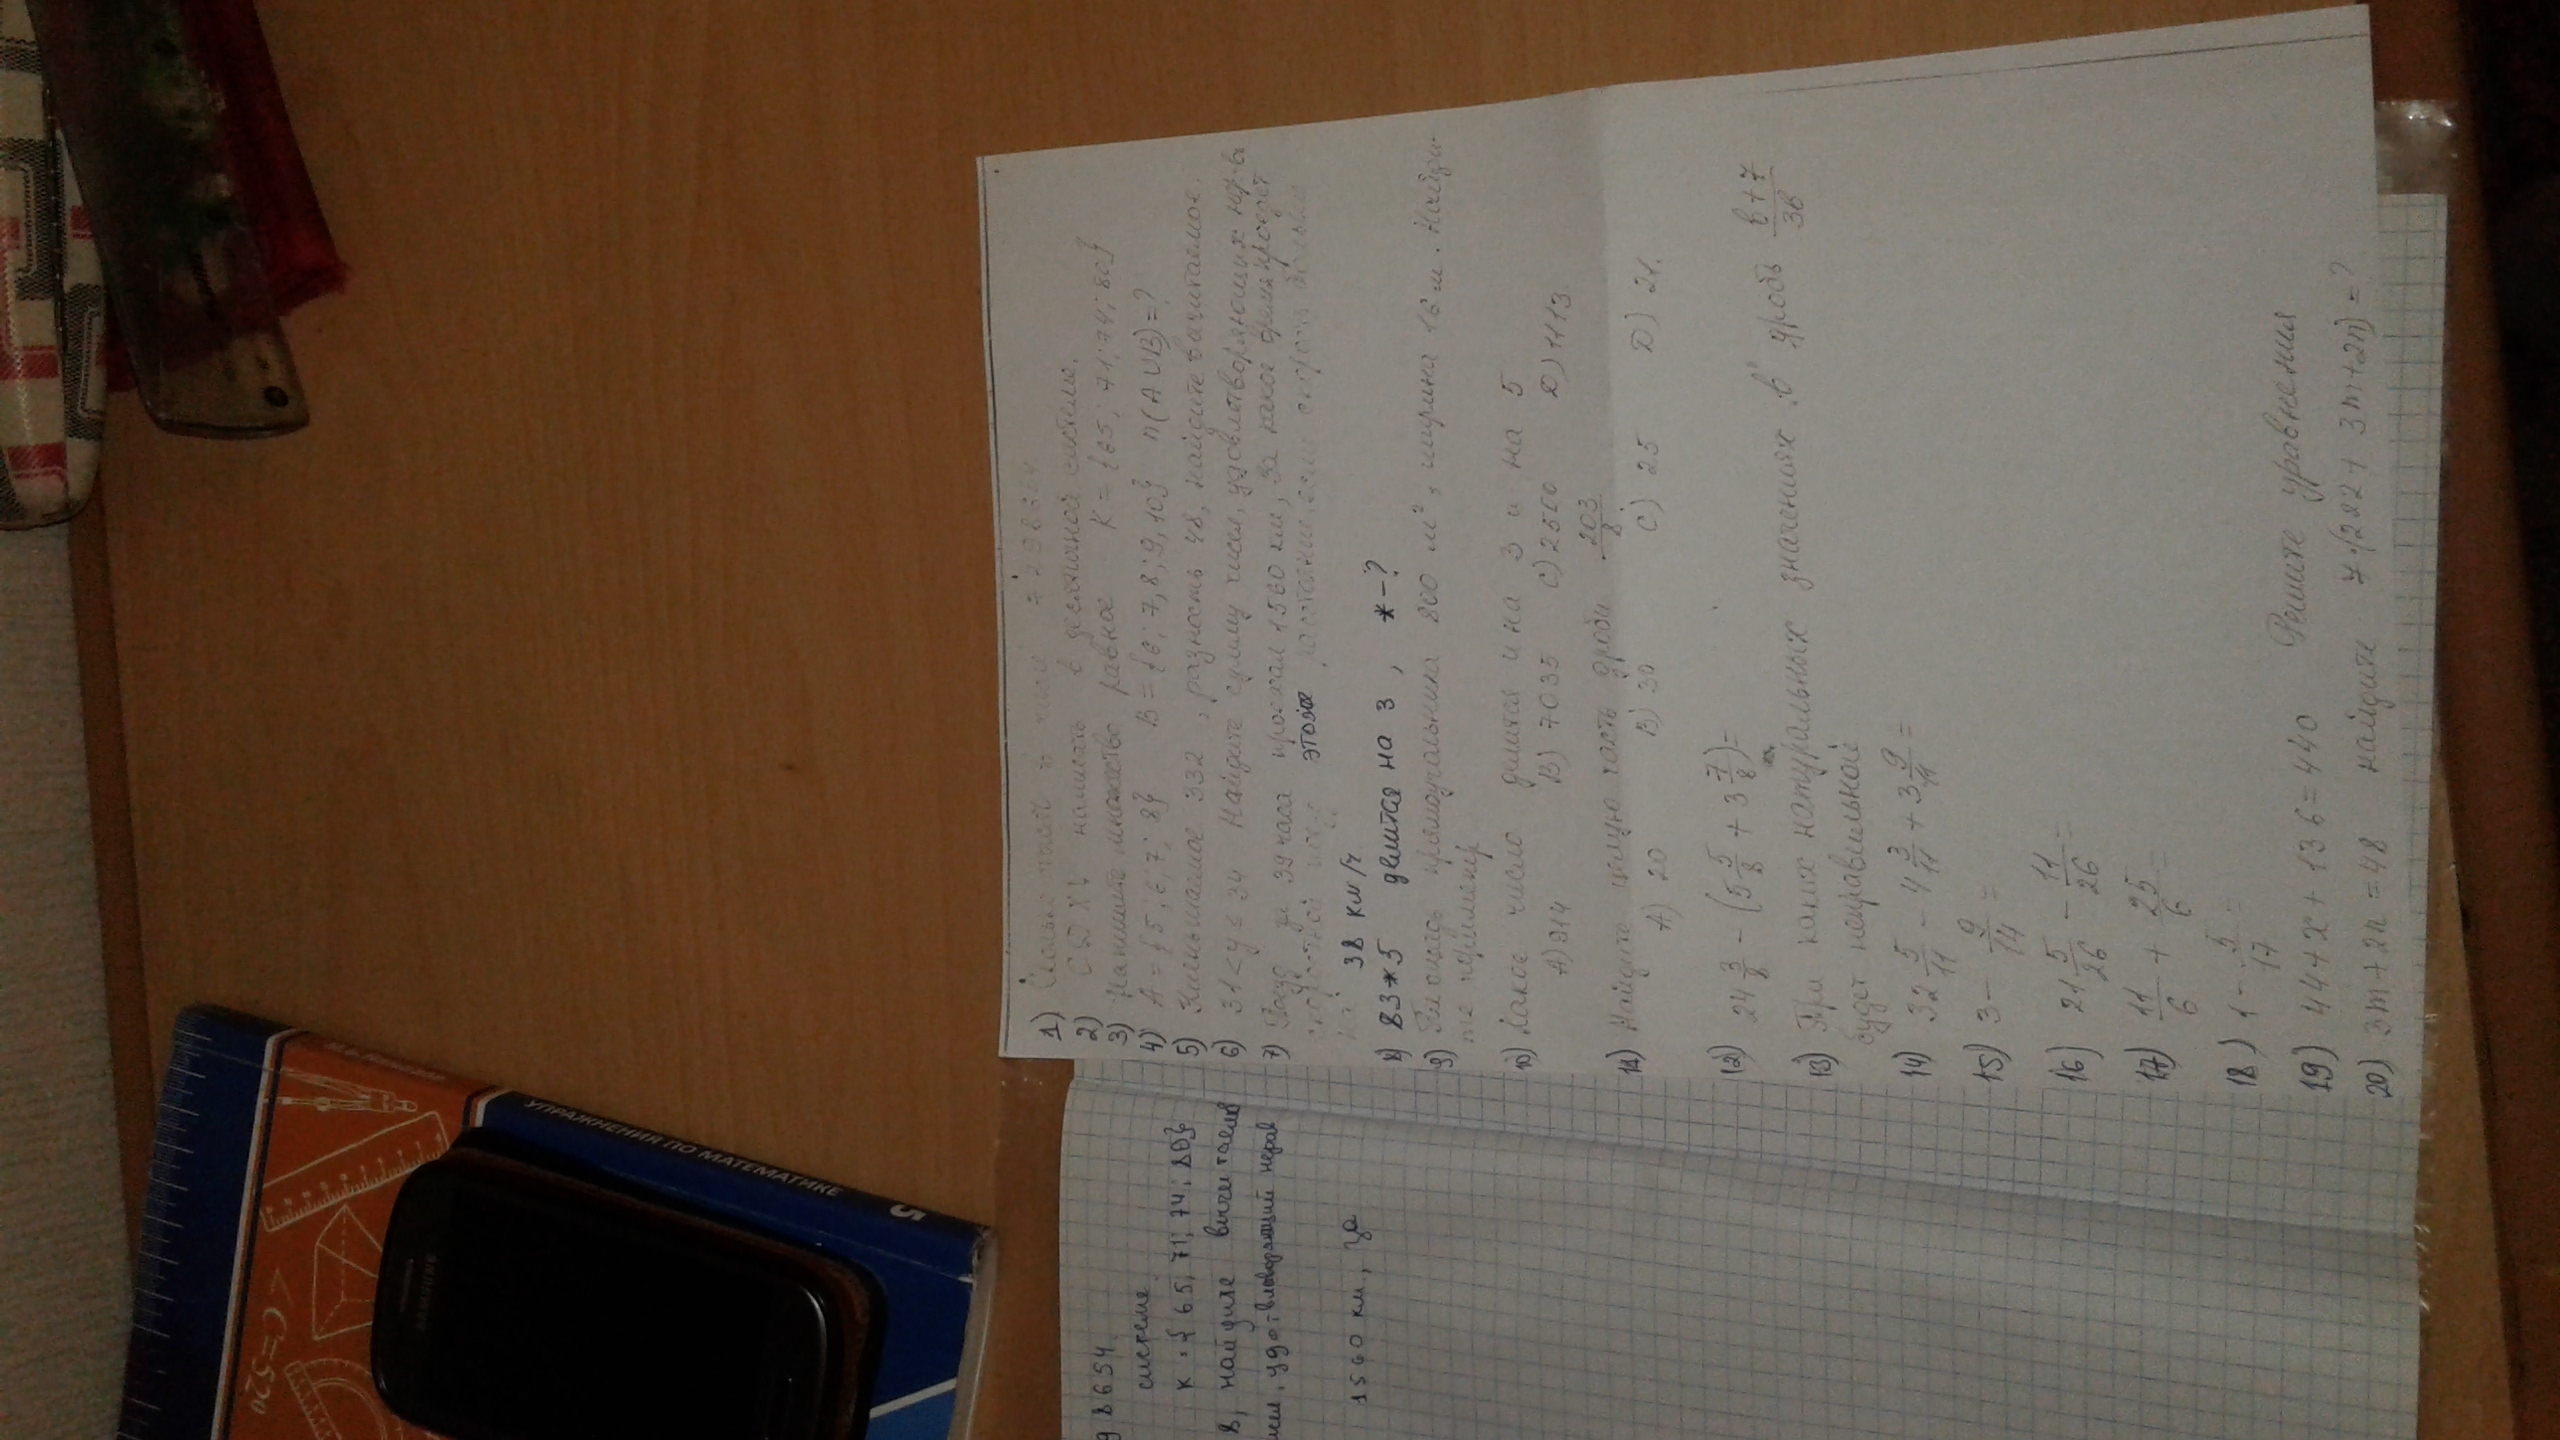 1) Сколько в числе
2) СDXL написать в десятичной системе.
3) Напишите множество равное K = {65; 71; 74; 80}
4) A = {5; 6; 7; 8} B = {6; 7, 8; 9, 10} n(A∪B) = ?
5) Уменьшаемое 332, разность 48, найдите вычитаемое.
6) 31 < y ≤ 34 Найдите сумму чисел, удовлетворяющих нер-в
7) Поезд за 39 часа проехал 1560 км, За какое время проедет
этоже расстояние, если скорость больше
38 км/ч
8) 83*5 делится на 3, *-?
9) Площадь прямоугольника 800 м², ширина 16 м. Найди-
те периметр
10) Какое число делится и на 3 и на 5
A) 914 B) 7035 C) 2560 D) 1113
11) Найдите целую часть дроби 203/8
A) 20 B) 30 C) 25 D) 21.
12) 24 3/8 - (5 5/8 + 3 7/8) =
13) При каких натуральных значениях "в" дробь в+7/3в
будет неправильной
14) 32 5/11 - 4 3/11 + 3 9/11 =
15) 3 - 9/14 =
16) 21 5/26 - 11/26 =
17) 11/6 + 25/6 =
18) 1 - 5/17 =
19) 44 + x + 136 = 440 Решите уравнения
20) 3m + 2n = 48 найдите 7·(222 + 3m + 2n) = ?
98654.
системе.
K = {65, 71; 74; 80}
8, найдите вычитаемое
удовлетворяющий нерав
1560 км, За
УПРАЖНЕНИЯ ПО МАТЕМАТИКЕ
5
SAMSUNG
C = 520